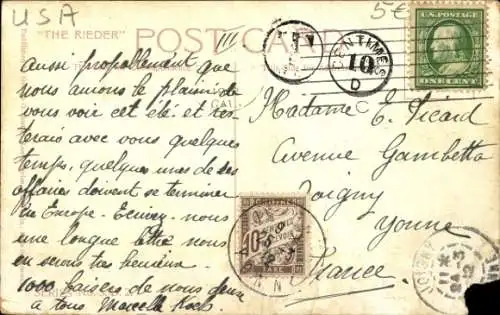 USA
5€
"THE RIEDER" POST CARD
U.S. POSTAGE
ONE CENT
CENTIMES
10
D
T
aussi propablement que
nous aurons le plaisir de
vous voir cet été et res
terais avec vous quelques
temps, quelques unes de ses
affaires doivent se terminer
en Europe. Ecrivez-nous
une longue lettre nous
en serons tres heureux
1000 baisers de nous deux
à tous Marcelle Koch
Madame E. Picard
Avenue Gambetta
Joigny
Yonne
France
10
CENTIMES
TAXE
JOIGNY
SERIES NO.